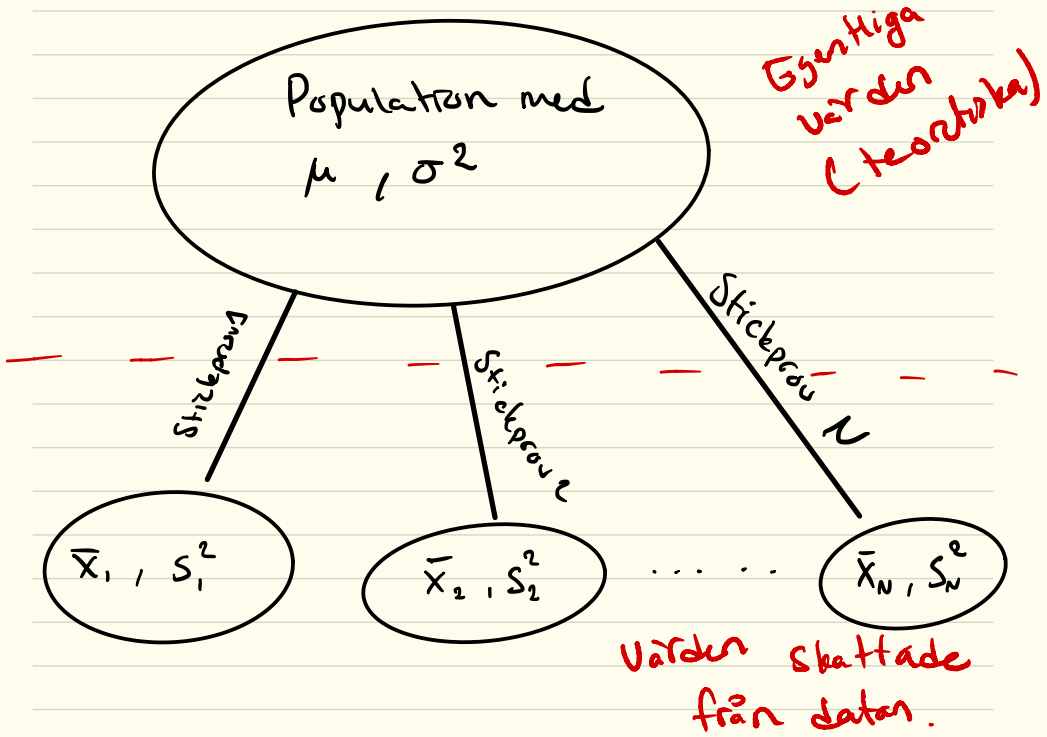 Population med
μ, σ²
Egentliga
värden
(teoretiska)
Stickprov 1
Stickprov 2
Stickprov N
x̄₁, S₁²
x̄₂, S₂²
. . . . . .
x̄_N, S_N²
Värden skattade
från datan.